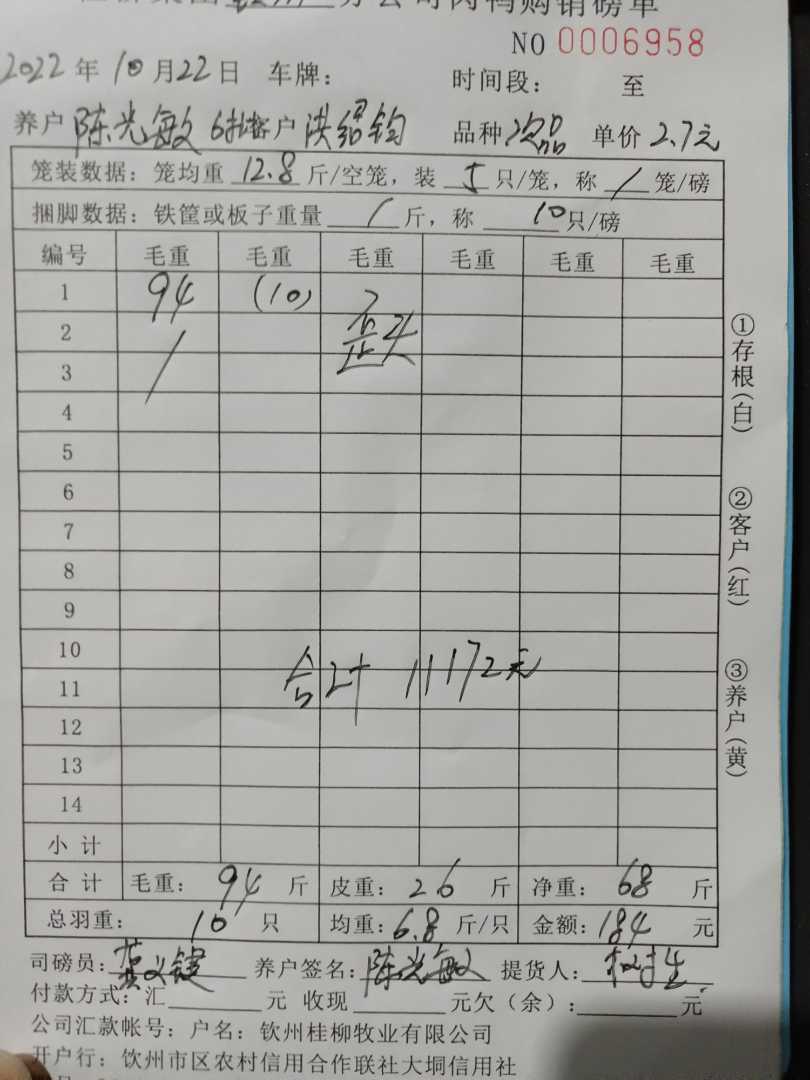 分公司肉鸭购销磅单
NO 0006958
2022 年 10 月 22 日 车牌: 时间段: 至
养户 陈光敏 6批 客户 洪绍钧 品种 次品 单价 2.7元
笼装数据: 笼均重 12.8 斤/空笼, 装 5 只/笼, 称 / 笼/磅
捆脚数据: 铁筐或板子重量 / 斤, 称 10 只/磅
编号 毛重 毛重 毛重 毛重 毛重 毛重
1 94 (10)
2 歪头
3 /
4
5
6
7
8
9
10
11 合计 11172元
12
13
14
小 计
合 计 毛重: 94 斤 皮重: 26 斤 净重: 68 斤
总羽重: 10 只 均重: 6.8 斤/只 金额: 184 元
司磅员: 养户签名: 陈光敏 提货人:
付款方式: 汇 元 收现 元欠(余): 元
公司汇款帐号: 户名: 钦州桂柳牧业有限公司
开户行: 钦州市区农村信用合作联社大垌信用社
①存根(白)
②客户(红)
③养户(黄)